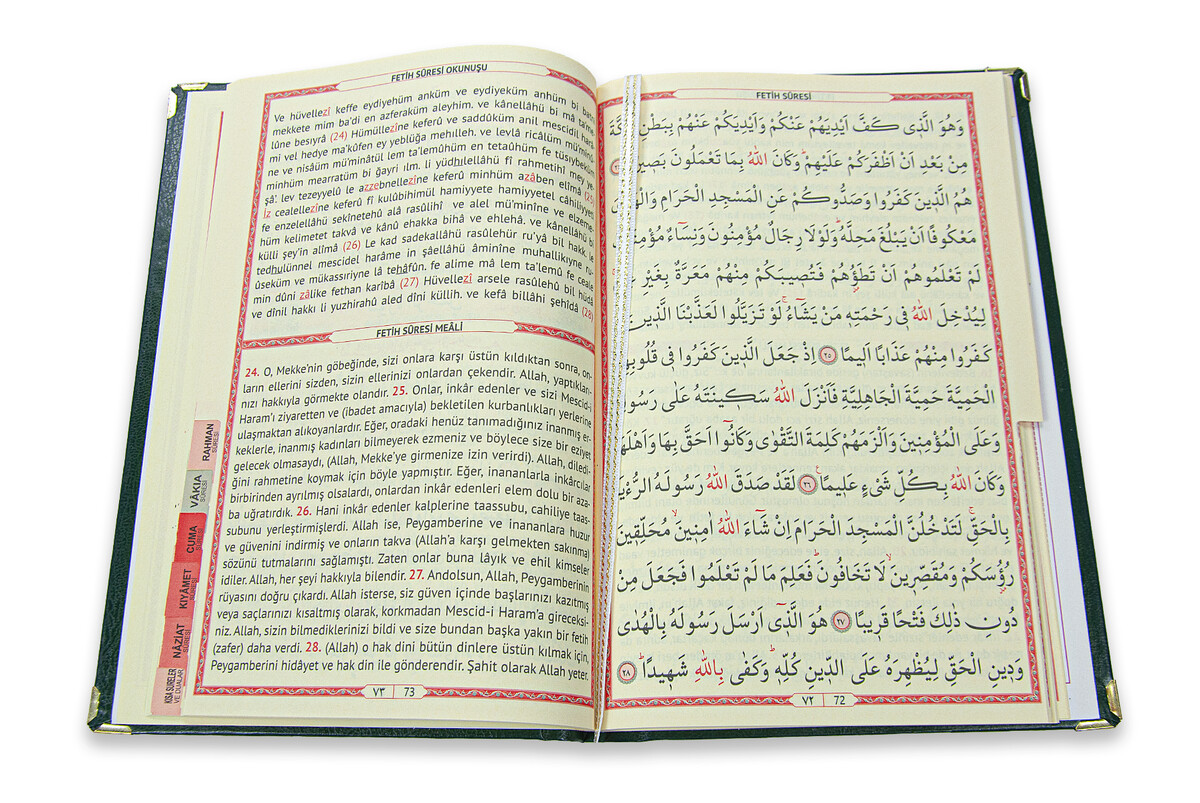 FETİH SÛRESİ OKUNUŞU
Ve hüvellezî keffe eydiyehüm anküm ve eydiyeküm anhüm bi batni
mekkete mim ba'di en azferaküm aleyhim. ve kânellâhü bi mâ ta'me
lûne besıyrâ (24) Hümüllezîne keferû ve saddûküm anil mescidil harâ
mi vel hedye ma'kûfen ey yeblüğa mehılleh. ve levlâ ricâlüm mü'minû
ne ve nisâüm mü'minâtül lem ta'lemûhüm en tetaûhüm fe tüsıybeküm
minhüm mearratüm bi ğayri ılm. li yüdhılellâhü fî rahmetihî mey ye
şâ'. lev tezeyyelû le azzebnellezîne keferû minhüm azâben elîmâ (25)
İz cealellezîne keferû fî kulûbihimül hamiyyete hamiyyetel câhiliyyeti
fe enzelellâhü sekînetehû alâ rasûlihî ve alel mü'minîne ve elzeme
hüm kelimetet takvâ ve kânû ehakka bihâ ve ehlehâ. ve kânellâhü bi
külli şey'in alîmâ (26) Le kad sadekallâhü rasûlehür ru'yâ bil hakk. le
tedhulünnel mescidel harâme in şâellâhü âminîne muhallikıyne ru-
ûseküm ve mükassıriyne lâ tehâfûn. fe alime mâ lem ta'lemû fe ceale
min dûni zâlike fethan karîbâ (27) Hüvellezî arsele rasûlehû bil hüdâ
ve dînil hakkı li yuzhirahû aled dîni küllih. ve kefâ billâhi şehîdâ (28)
FETİH SÛRESİ MEÂLİ
24. O, Mekke'nin göbeğinde, sizi onlara karşı üstün kıldıktan sonra, on-
ların ellerini sizden, sizin ellerinizi onlardan çekendir. Allah, yaptıkları-
nızı hakkıyla görmekte olandır. 25. Onlar, inkâr edenler ve sizi Mescid-i
Haram'ı ziyaretten ve (ibadet amacıyla) bekletilen kurbanlıkları yerlerine
ulaşmaktan alıkoyanlardır. Eğer, oradaki henüz tanımadığınız inanmış er-
keklerle, inanmış kadınları bilmeyerek ezmeniz ve böylece size bir eziyet
gelecek olmasaydı, (Allah, Mekke'ye girmenize izin verirdi). Allah, diledi-
ğini rahmetine koymak için böyle yapmıştır. Eğer, inananlarla inkârcılar
birbirinden ayrılmış olsalardı, onlardan inkâr edenleri elem dolu bir aza-
ba uğratırdık. 26. Hani inkâr edenler kalplerine taassubu, cahiliye taas-
subunu yerleştirmişlerdi. Allah ise, Peygamberine ve inananlara huzur
ve güvenini indirmiş ve onların takva (Allah'a karşı gelmekten sakınma)
sözünü tutmalarını sağlamıştı. Zaten onlar buna lâyık ve ehil kimseler
idiler. Allah, her şeyi hakkıyla bilendir. 27. Andolsun, Allah, Peygamberinin
rüyasını doğru çıkardı. Allah isterse, siz güven içinde başlarınızı kazıtmış
veya saçlarınızı kısaltmış olarak, korkmadan Mescid-i Haram'a gireceksi-
niz. Allah, sizin bilmediklerinizi bildi ve size bundan başka yakın bir fetih
(zafer) daha verdi. 28. (Allah) o hak dini bütün dinlere üstün kılmak için,
Peygamberini hidâyet ve hak din ile gönderendir. Şahit olarak Allah yeter.
٧٣ | 73
RAHMAN SÛRESİ
VÂKIA SÛRESİ
CUMA SÛRESİ
KIYÂMET SÛRESİ
NÂZİAT SÛRESİ
KISA SURELER VE DUALAR
FETİH SÛRESİ
وَهُوَ الَّذِى كَفَّ اَيْدِيَهُمْ عَنْكُمْ وَاَيْدِيَكُمْ عَنْهُمْ بِبَطْنِ
مِنْ بَعْدِ اَنْ اَظْفَرَكُمْ عَلَيْهِمْ وَكَانَ اللّٰهُ بِمَا تَعْمَلُونَ بَصِيرًا
هُمُ الَّذِينَ كَفَرُوا وَصَدُّوكُمْ عَنِ الْمَسْجِدِ الْحَرَامِ
مَعْكُوفًا اَنْ يَبْلُغَ مَحِلَّهُ وَلَوْلَا رِجَالٌ مُؤْمِنُونَ وَنِسَاءٌ
لَمْ تَعْلَمُوهُمْ اَنْ تَطَؤُهُمْ فَتُصِيبَكُمْ مِنْهُمْ مَعَرَّةٌ بِغَيْرِ
لِيُدْخِلَ اللّٰهُ فِى رَحْمَتِهِ مَنْ يَشَاءُ لَوْ تَزَيَّلُوا لَعَذَّبْنَا الَّذِينَ
كَفَرُوا مِنْهُمْ عَذَابًا اَلِيمًا ٢٥ اِذْ جَعَلَ الَّذِينَ كَفَرُوا فِى
الْحَمِيَّةَ حَمِيَّةَ الْجَاهِلِيَّةِ فَاَنْزَلَ اللّٰهُ سَكِينَتَهُ عَلٰى
وَعَلَى الْمُؤْمِنِينَ وَاَلْزَمَهُمْ كَلِمَةَ التَّقْوٰى وَكَانُوا اَحَقَّ بِهَا وَاَهْلَهَا
وَكَانَ اللّٰهُ بِكُلِّ شَىْءٍ عَلِيمًا ٢٦ لَقَدْ صَدَقَ اللّٰهُ رَسُولَهُ
بِالْحَقِّ لَتَدْخُلُنَّ الْمَسْجِدَ الْحَرَامَ اِنْ شَاءَ اللّٰهُ اٰمِنِينَ مُحَلِّقِينَ
رُؤُسَكُمْ وَمُقَصِّرِينَ لَا تَخَافُونَ فَعَلِمَ مَا لَمْ تَعْلَمُوا فَجَعَلَ مِنْ
دُونِ ذٰلِكَ فَتْحًا قَرِيبًا ٢٧ هُوَ الَّذِى اَرْسَلَ رَسُولَهُ بِالْهُدٰى
وَدِينِ الْحَقِّ لِيُظْهِرَهُ عَلَى الدِّينِ كُلِّهِ وَكَفٰى بِاللّٰهِ شَهِيدًا ٢٨
٧٢ | 72